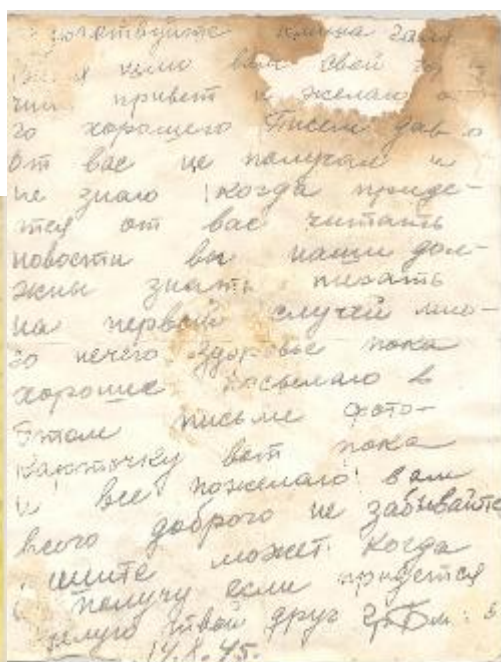 Здравствуйте
шлю вам свой го
чий привет и желаю
го хорошего Писем дав о
от вас не получал и
не знаю когда приде-
тся от вас читать
новости вы наши дол-
жны знать писать
на первой случай мно-
го нечего здоровье пока
хорошие посылаю в
этом письме фото-
карточку вот пока
и все пожелаю вам
всего доброго не забывайте
шите может когда
получу если придется
целую твой друг
45.